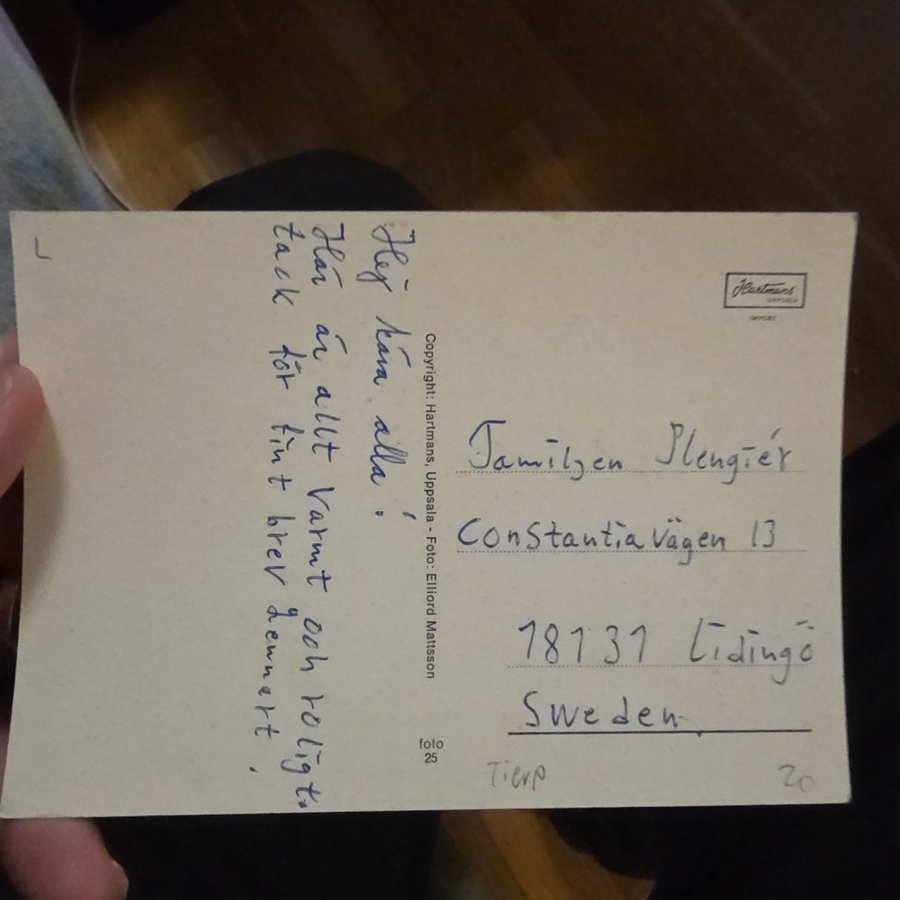 Hej kära alla!
Här är allt varmt och roligt.
tack för fint brev Lennart.
Copyright: Hartmans, Uppsala - Foto: Elliord Mattsson
foto
25
Hartmans
UPPSALA
IMPORT
Familjen Plengiér
Constantiavägen 13
18131 Lidingö
Sweden
Tierp
20
L